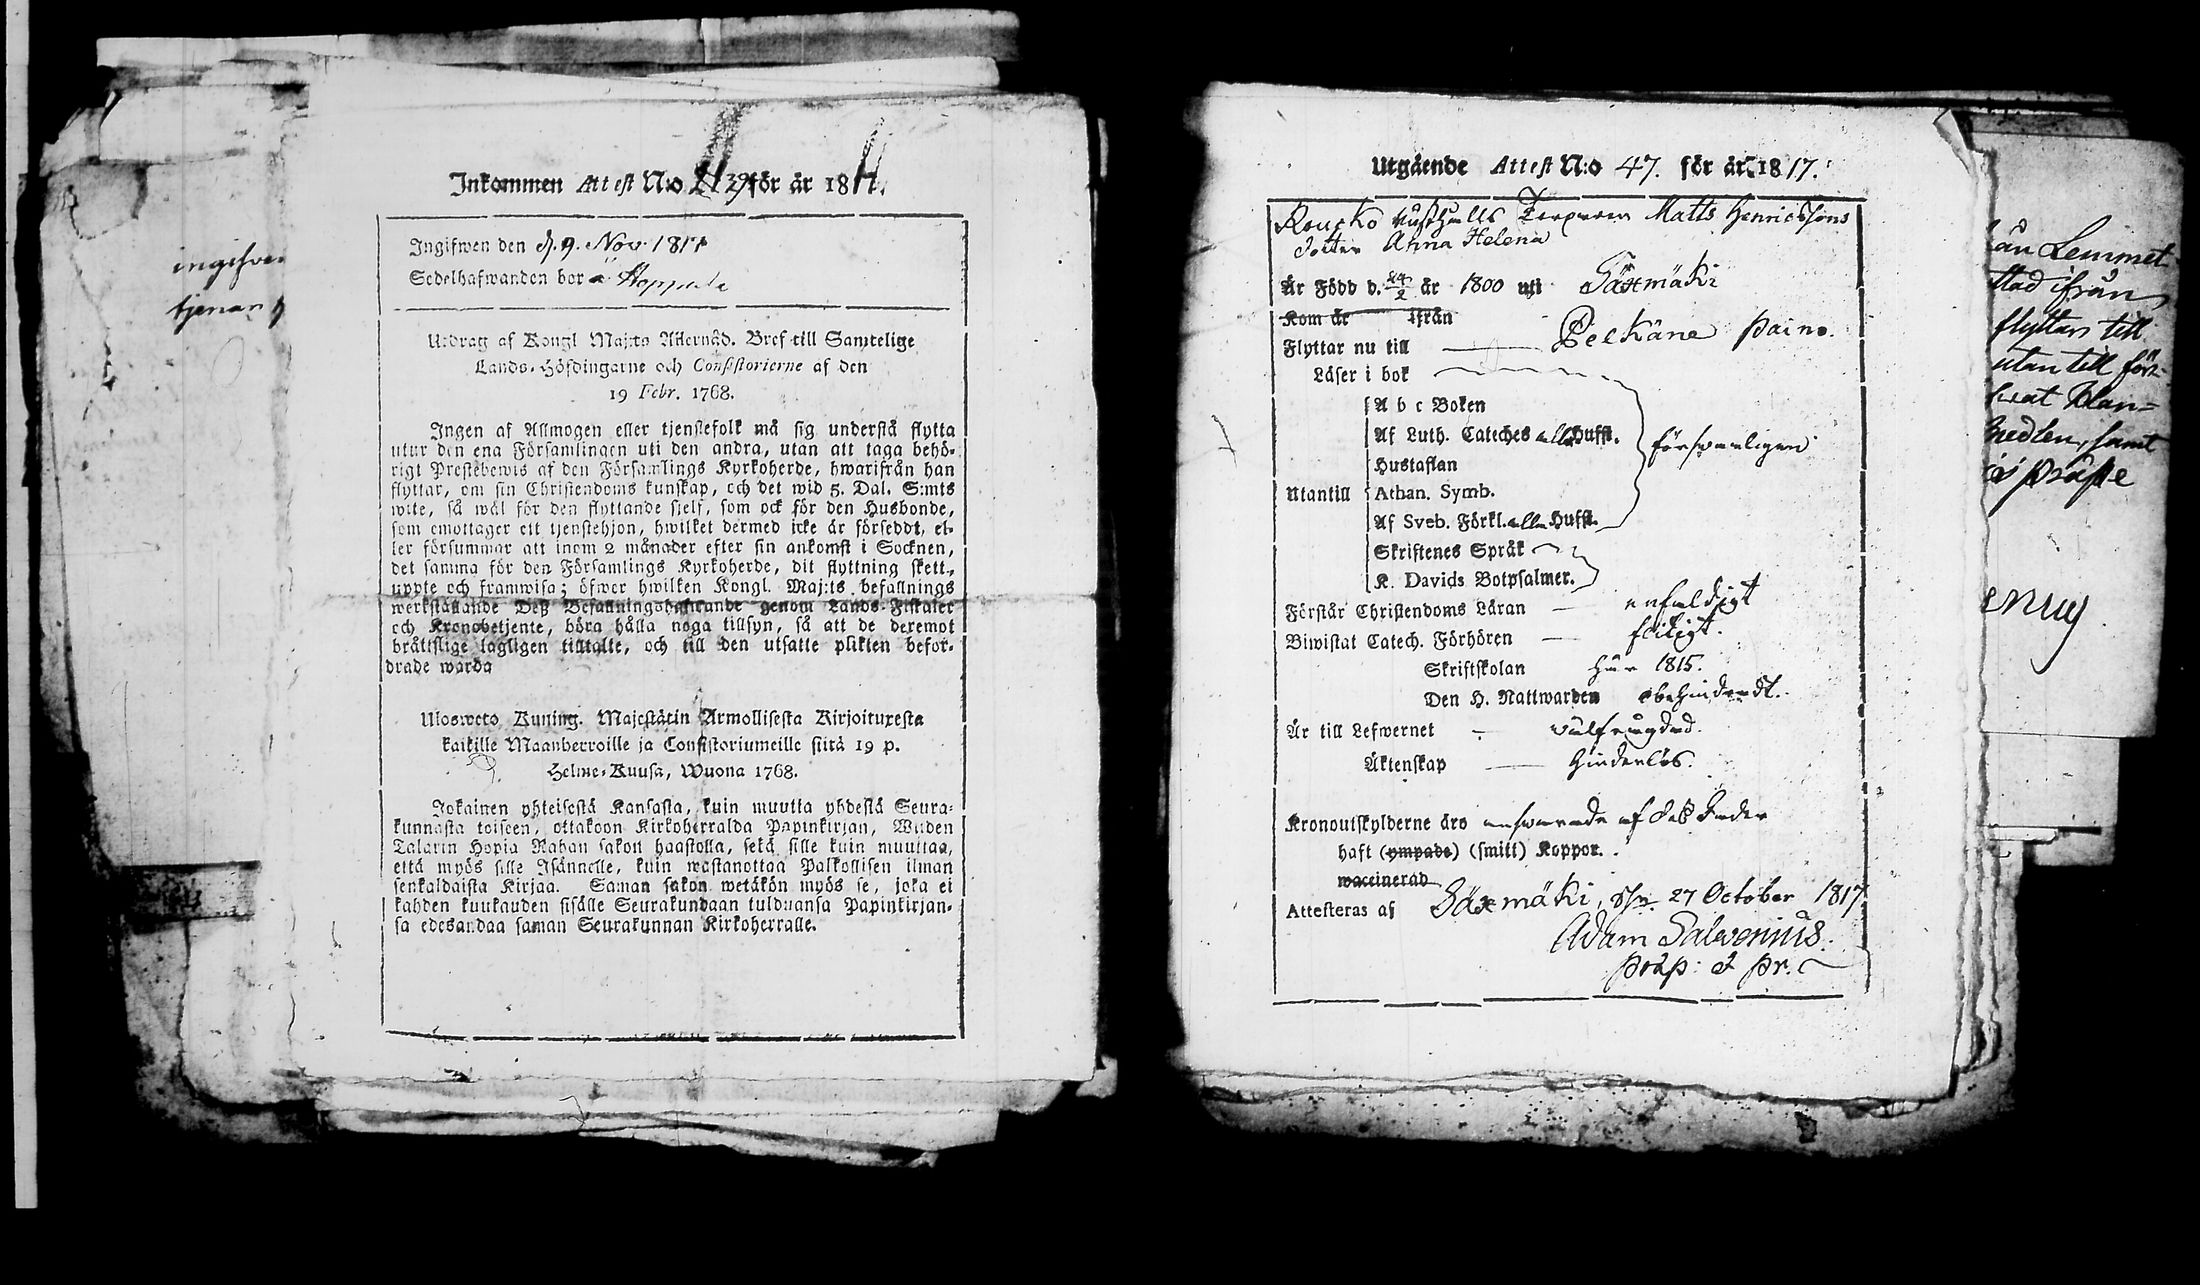 Inkommen Attest N:o 39 för år 1817.
Ingifwen den d. 9. Nov. 1817
Sedelhafwanden bor
Utdrag af Kongl Maj:ts Allernåd. Bref till Samtelige
Lands-Höfdingarne och Consistorierne af den
19 Febr. 1768.
Ingen af Allmogen eller tjenstefolk må sig understå flytta
utur den ena Församlingen uti den andra, utan att taga behö-
rigt Prestebewis af den Församlings Kyrkoherde, hwarifrån han
flyttar, om sin Christendoms kunskap, och det wid 5. Dal. S:mts
wite, så wäl för den flyttande sjelf, som ock för den Husbonde,
som emottager ett tjenstehjon, hwilket dermed icke är försedt, el-
ler försummar att inom 2 månader efter sin ankomst i Socknen,
det samma för den Församlings Kyrkoherde, dit flyttning skett,
uppte och framwisa; öfwer hwilken Kongl. Maj:ts befallnings
werkställande Deß Befallningshafwande genom Lands-Fiskaler
och Kronobetjente, böra hålla noga tillsyn, så att de deremot
bråttslige lagligen tilltalte, och till den utsatte plikten befor-
drade warda
Ulosweto Kuning. Majestätin Armollisesta Kirjoituxesta
kaikille Maanherroille ja Consistoriumeille siitä 19 p.
Helme-Kuusa, Wuona 1768.
Jokainen yhteisestä Kansasta, kuin muutta yhdestä Seura-
kunnasta toiseen, ottakoon Kirkoherralda Papinkirjan, Wiiden
Talarin Hopia Rahan sakon haastolla, sekä sille kuin muuttaa,
että myös sille Isännelle, kuin wastanottaa Palkollisen ilman
senkaldaista Kirjaa. Saman sakon wetäkön myös se, joka ei
kahden kuukauden sisälle Seurakundaan tulduansa Papinkirjan-
sa edesandaa saman Seurakunnan Kirkoherralle.
ingifwe
tjenar
Utgående Attest N:o 47. för år 1817.
Roucko Rusthålls Torparen Matts Henricssons
dotter Anna Helena
Är Född d. 24/2 år 1800 uti Sääxmäki
Kom år ifrån
Flyttar nu till Pelkäne Paino.
Läser i bok
A b c Boken
Af Luth. Cateches alla Hufst.
försvarligen
Hustaflan
Utantill Athan. Symb.
Af Sveb. Förkl. alla Hufst.
Skriftenes Språk
K. Davids Botpsalmer.
Förstår Christendoms Läran enfaldigt
Biwistat Catech. Förhören flitigt.
Skriftskolan här 1815.
Den H. Nattwarden obehindradt.
Är till Lefwernet välfrägdad.
Äktenskap hinderlös.
Kronoutskylderne äro ansvarade af des Fader
haft (ympade) (smitt) Koppor.
waccinerad
Attesteras af Sääxmäki, d. 27 October 1817
Adam Salvenius.
Præp: & Pr.
Lemmet
ttad ifrån
flyttar till
utan till för-